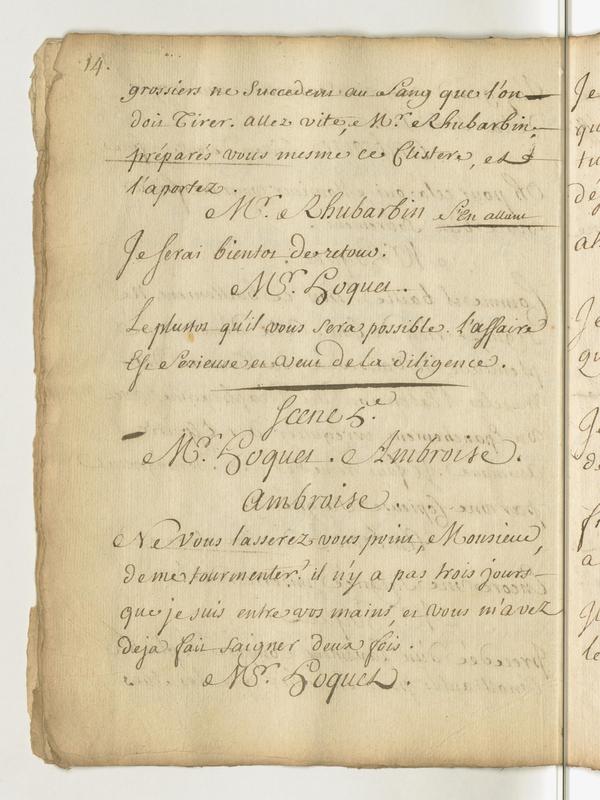 14.
grossiers ne Succedent au Sang que l'on
doit Tirer. allez vite, Mr. Rhubarbin,
préparés vous mesme ce Clistere, et
l'aportez.
Mr. Rhubarbin s'En allant
Je serai bientot de retour.
Mr. Hoquet.
Le plustot qu'il vous sera possible. l'affaire
Est Serieuse et veut de la diligence.
Scene 5.e
Mr. Hoquet. Ambroise.
Ambroise.
Ne Vous lasserez vous point, Monsieur,
de me tourmenter? il n'y a pas trois jours
que je suis entre vos mains, et vous m'avez
deja fait saigner deux fois.
Mr. Hoquet.
Je
qu
tu
Je
qu
de
a
le